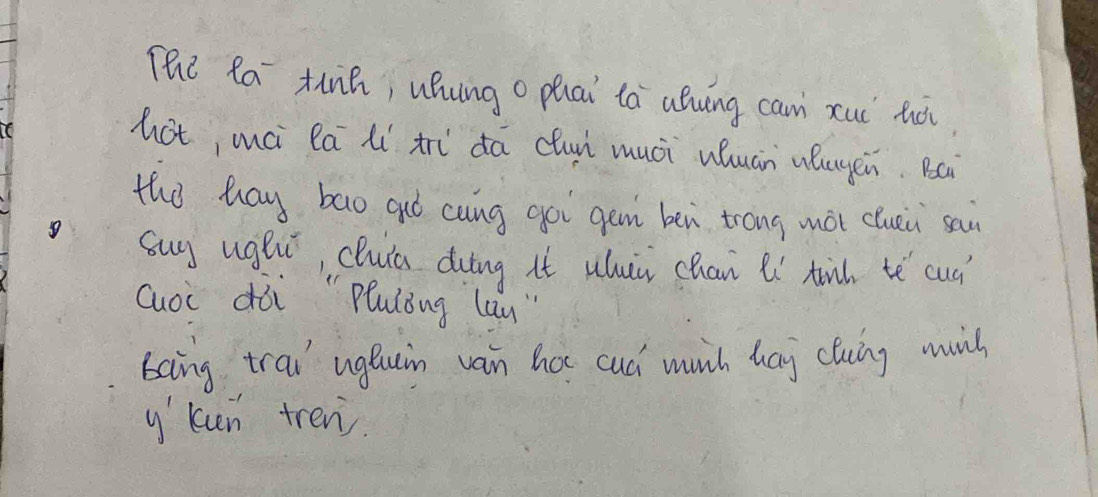 Thơ là tình, nhưng o phải là những cảm xúc hời
hợt, mà là lí trí đã chín muồi nhuần nhuyễn. Bài
thơ hay bao giờ cũng gói gém bên trong một chiều sâu
suy nghĩ, chứa đựng ít nhiều chân lí tinh tế của
cuộc đời "Phương Lựu"
Bằng trải nghiệm văn học của mình hãy chứng minh
ý kiến trên.